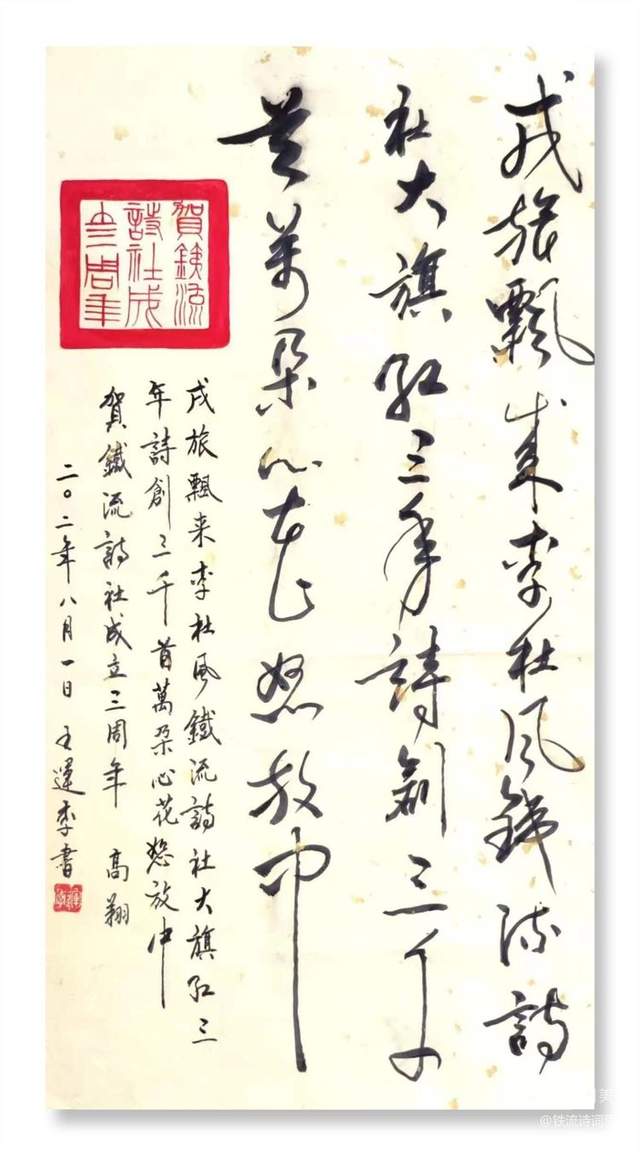 戎旅飄来李杜风鐵流詩
社大旗红三年詩創三千
首萬朵心花怒放中
賀銕流
詩社成
立三周年
戎旅飄来李杜风鐵流詩社大旗红三
年詩創三千首萬朵心花怒放中
賀鐵流詩社成立三周年 高翔
二〇二年八月一日 王運李書
美
@铁流诗词